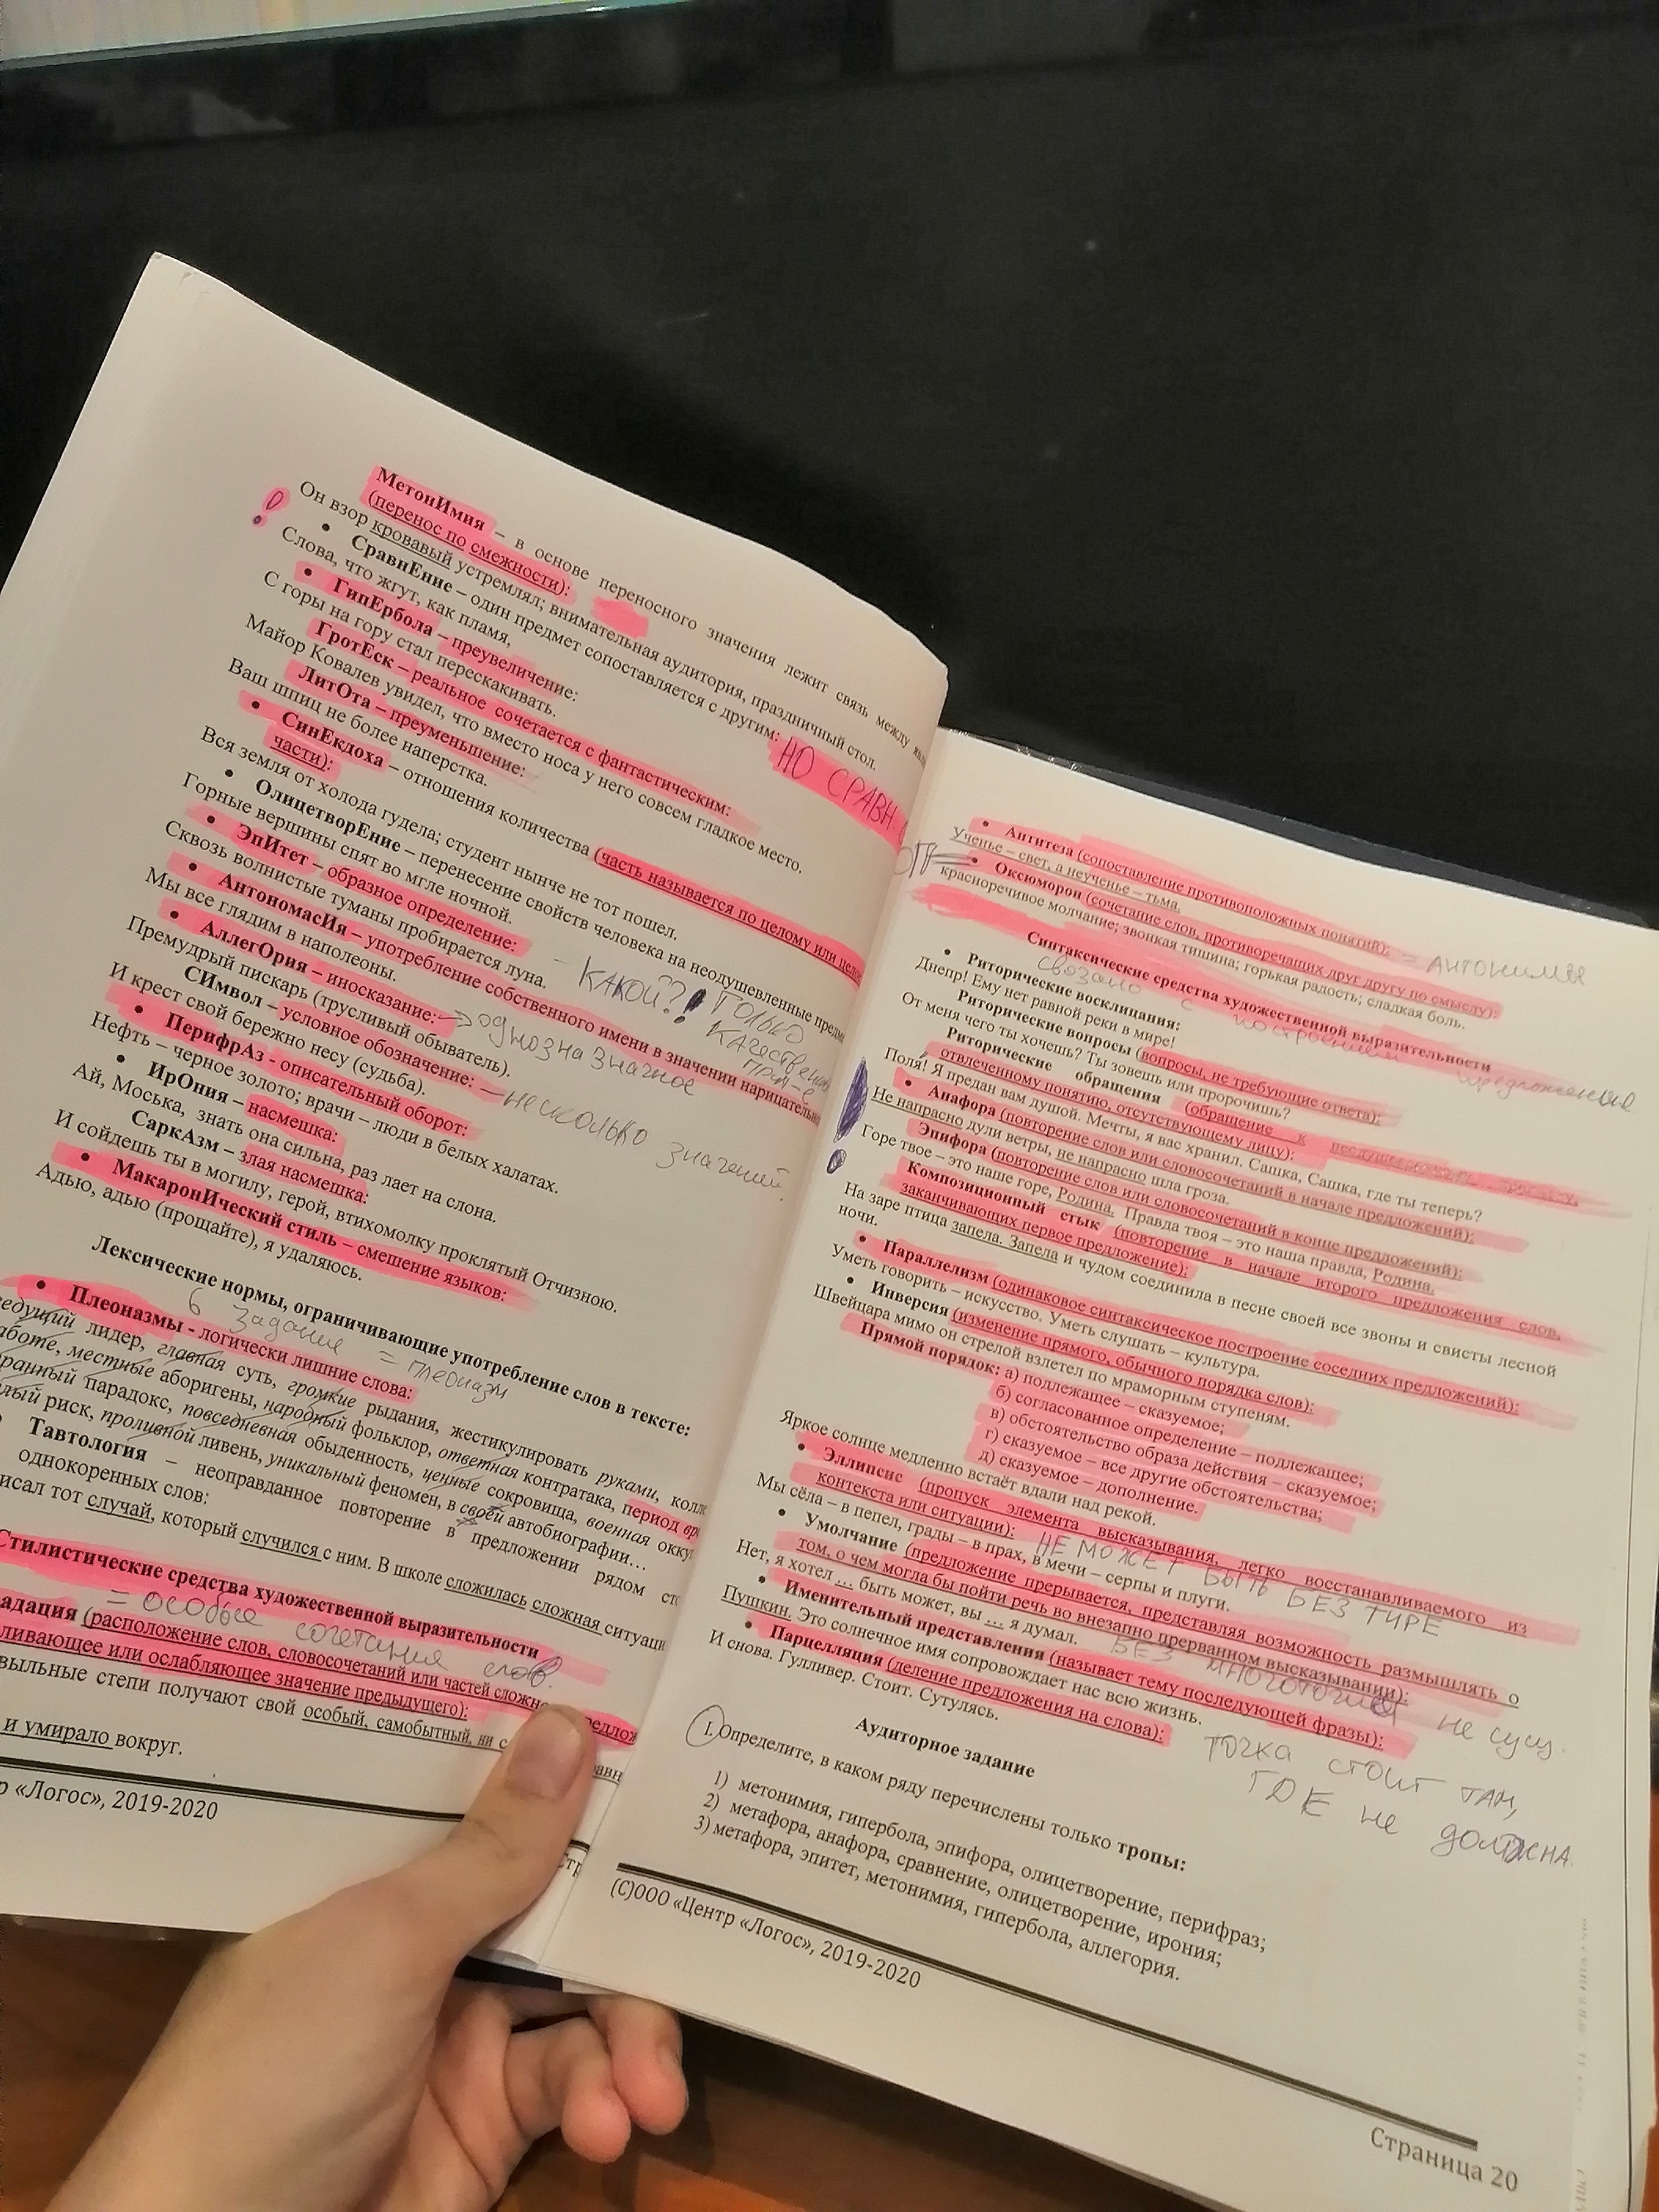 МетонИмия – в основе переносного значения лежит связь между
(перенос по смежности):
Он взор кровавый устремлял; внимательная аудитория, праздничный стол.
• СравнЕние – один предмет сопоставляется с другим:
Слова, что жгут, как пламя,
НО СРАВН.
• ГипЕрбола – преувеличение:
С горы на гору стал перескакивать.
ГротЕск – реальное сочетается с фантастическим:
Майор Ковалев увидел, что вместо носа у него совсем гладкое место.
ЛитОта – преуменьшение:
Ваш шпиц не более наперстка.
• СинЕкдоха – отношения количества (часть называется по целому или
части):
Вся земля от холода гудела; студент нынче не тот пошел.
• ОлицетворЕние – перенесение свойств человека на неодушевленные
Горные вершины спят во мгле ночной.
• ЭпИтет – образное определение:
Сквозь волнистые туманы пробирается луна.
КАКОЙ?! ТОЛЬКО
• АнтономасИя – употребление собственного имени в значении
Мы все глядим в наполеоны.
• АллегОрия – иносказание: однозначное
Премудрый пискарь (трусливый обыватель).
СИмвол – условное обозначение: – несколько значений
И крест свой бережно несу (судьба).
• ПерифрАз - описательный оборот:
Нефть – черное золото; врачи – люди в белых халатах.
• ИрОния – насмешка:
Ай, Моська, знать она сильна, раз лает на слона.
СаркАзм – злая насмешка:
И сойдешь ты в могилу, герой, втихомолку проклятый Отчизною.
• МакаронИческий стиль – смешение языков:
Адью, адью (прощайте), я удаляюсь.
Лексические нормы, ограничивающие употребление слов в тексте:
6 задание = плеоназм
• Плеоназмы - логически лишние слова:
лидер, главная суть, громкие рыдания, жестикулировать руками,
местные аборигены, народный фольклор, ответная контратака, период
парадокс, повседневная обыденность, ценные сокровища, военная
риск, проливной ливень, уникальный феномен, в своей автобиографии…
Тавтология – неоправданное повторение в предложении рядом
однокоренных слов:
тот случай, который случился с ним. В школе сложилась сложная
Стилистические средства художественной выразительности
= особые сочетания слов.
(расположение слов, словосочетаний или частей
или ослабляющее значение предыдущего):
степи получают свой особый, самобытный, ни с
и умирало вокруг.
«Логос», 2019-2020
• Антитеза (сопоставление противоположных понятий):
Ученье – свет, а неученье – тьма.
• Оксюморон (сочетание слов, противоречащих друг другу по смыслу):
= АНТОНИМИЯ
красноречивое молчание; звонкая тишина; горькая радость; сладкая боль.
Синтаксические средства художественной выразительности
связано с построением предложения
• Риторические восклицания:
Днепр! Ему нет равной реки в мире!
Риторические вопросы (вопросы, не требующие ответа):
От меня чего ты хочешь? Ты зовешь или пророчишь?
Риторические обращения (обращение к
отвлеченному понятию, отсутствующему лицу):
Поля! Я предан вам душой. Мечты, я вас хранил. Сашка, Сашка, где ты теперь?
• Анафора (повторение слов или словосочетаний в начале предложений):
Не напрасно дули ветры, не напрасно шла гроза.
Эпифора (повторение слов или словосочетаний в конце предложений):
Горе твое – это наше горе, Родина. Правда твоя – это наша правда, Родина.
Композиционный стык (повторение в начале второго предложения слов,
заканчивающих первое предложение):
На заре птица запела. Запела и чудом соединила в песне своей все звоны и свисты лесной
ночи.
• Параллелизм (одинаковое синтаксическое построение соседних предложений):
Уметь говорить – искусство. Уметь слушать – культура.
• Инверсия (изменение прямого, обычного порядка слов):
Швейцара мимо он стрелой взлетел по мраморным ступеням.
Прямой порядок: а) подлежащее – сказуемое;
б) согласованное определение – подлежащее;
в) обстоятельство образа действия – сказуемое;
г) сказуемое – все другие обстоятельства;
д) сказуемое – дополнение.
Яркое солнце медленно встаёт вдали над рекой.
• Эллипсис (пропуск элемента высказывания, легко восстанавливаемого из
контекста или ситуации): НЕ МОЖЕТ БЫТЬ БЕЗ ТИРЕ
Мы сёла – в пепел, грады – в прах, в мечи – серпы и плуги.
• Умолчание (предложение прерывается, представляя возможность размышлять о
том, о чем могла бы пойти речь во внезапно прерванном высказывании):
Нет, я хотел … быть может, вы … я думал. БЕЗ МНОГОТОЧИЯ не сущ.
• Именительный представления (называет тему последующей фразы):
Пушкин. Это солнечное имя сопровождает нас всю жизнь.
• Парцелляция (деление предложения на слова):
И снова. Гулливер. Стоит. Сутулясь.
Точка стоит там,
ГДЕ не должна
Аудиторное задание
1. Определите, в каком ряду перечислены только тропы:
1) метонимия, гипербола, эпифора, олицетворение, перифраз;
2) метафора, анафора, сравнение, олицетворение, ирония;
3) метафора, эпитет, метонимия, гипербола, аллегория.
(С)ООО «Центр «Логос», 2019-2020
Страница 20